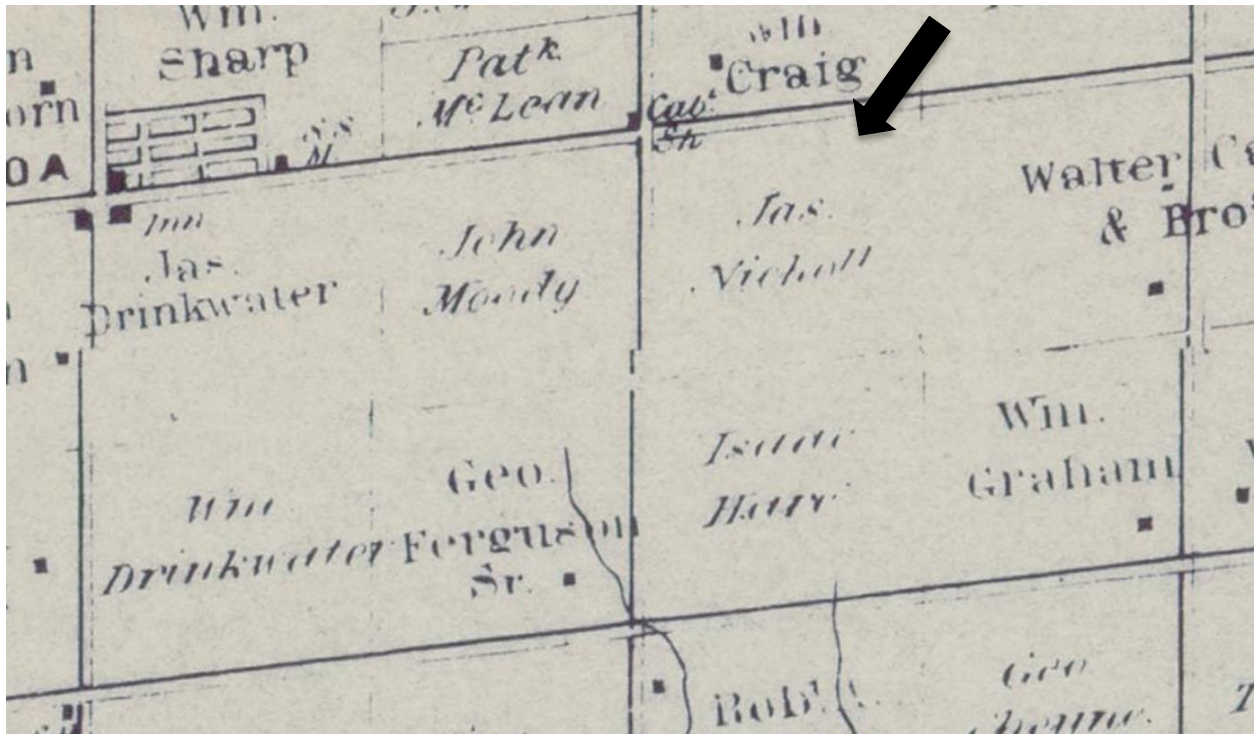 Wm.
Sharp
Patk.
McLean
Craig
orn
OA
S.S
M
Cab.t
Sh
Inn
Jas.
Drinkwater
John
Moody
Jas.
Nicholl
Walter
& Bros
Wm
Drinkwater
Geo.
Ferguson
Sr.
Isaac
Wm.
Graham
Robt.
Geo